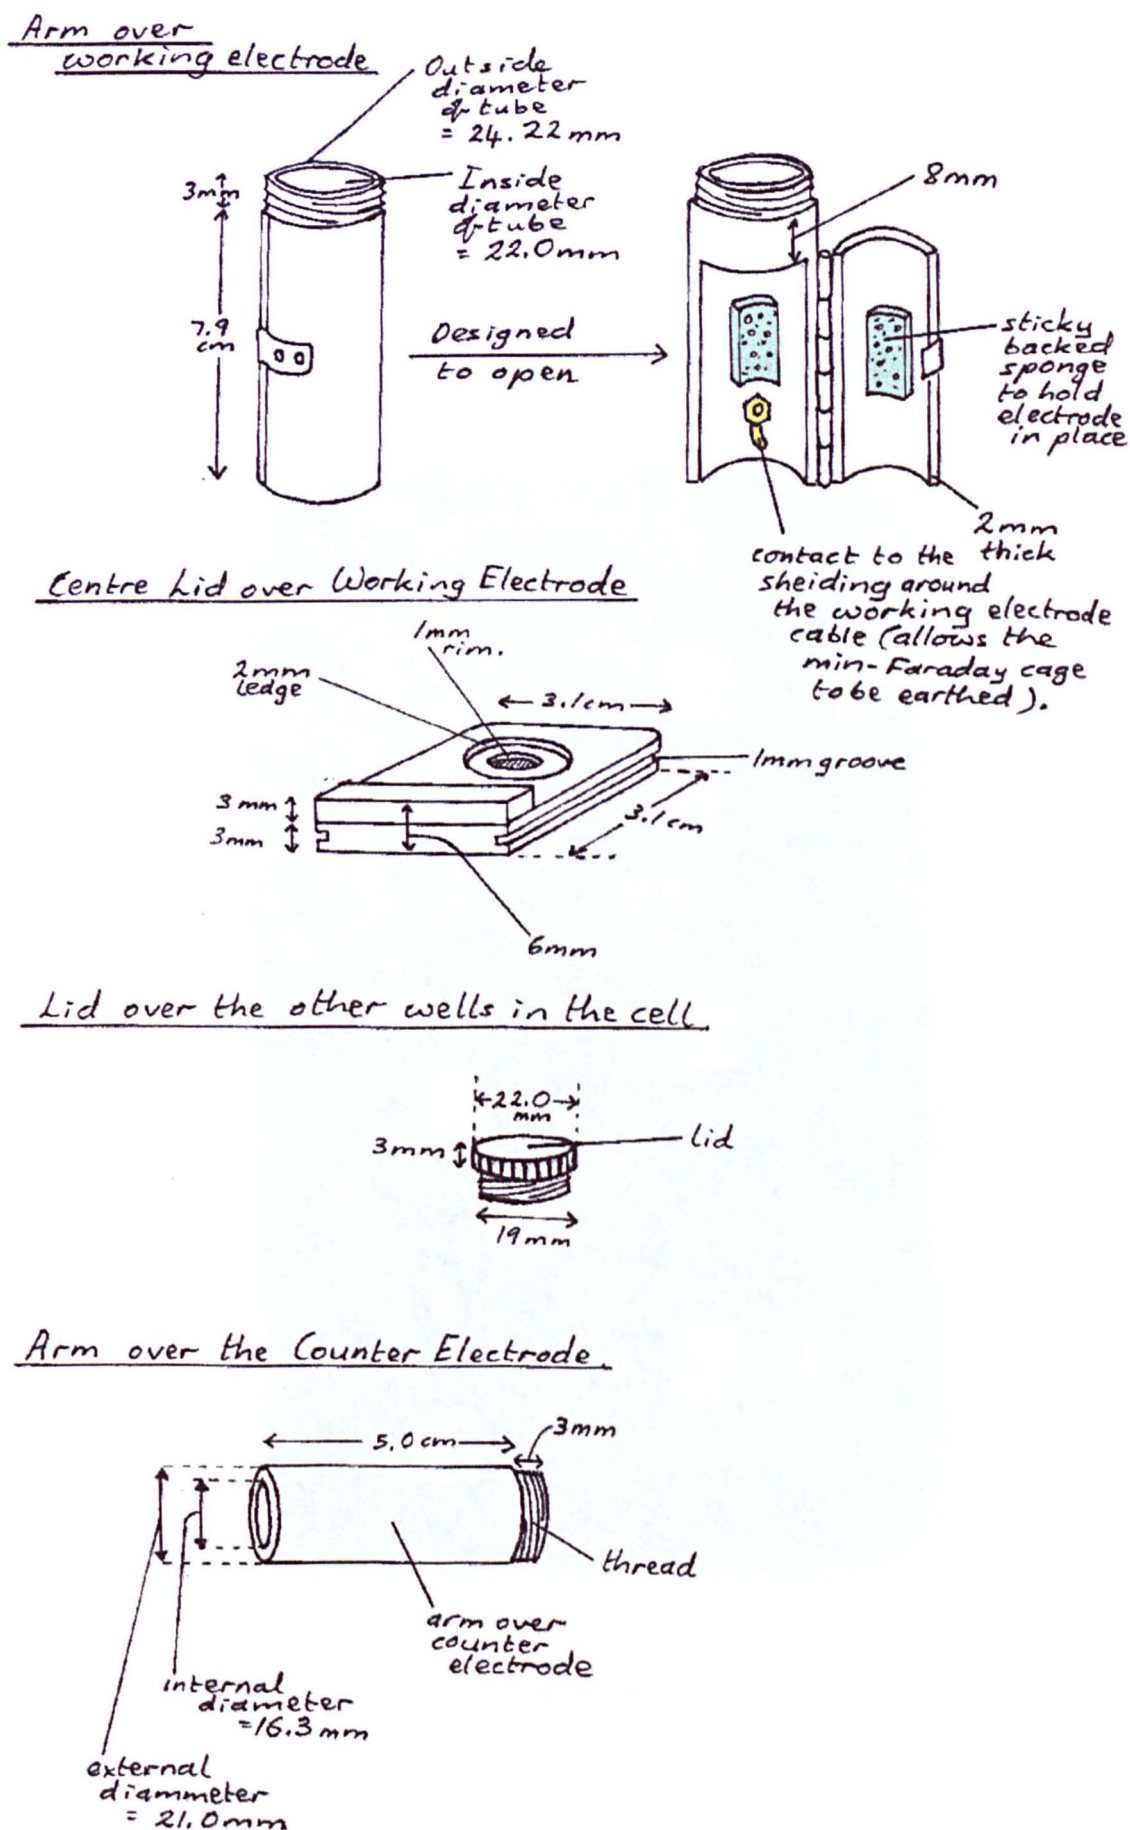 Arm over
working electrode
Outside
diameter
of tube
= 24.22 mm
3mm
Inside
diameter
of tube
= 22.0mm
7.9
cm
Designed
to open
8mm
sticky
backed
sponge
to hold
electrode
in place
2mm
thick
contact to the
sheiding around
the working electrode
cable (allows the
min-Faraday cage
to be earthed).
Centre Lid over Working Electrode
1mm
rim.
2mm
ledge
3.1cm
1mm groove
3mm
3mm
3.1cm
6mm
Lid over the other wells in the cell.
22.0
mm
3mm
lid
19mm
Arm over the Counter Electrode.
5.0cm
3mm
thread
arm over
counter
electrode
internal
diameter
=16.3mm
external
diammeter
= 21.0mm